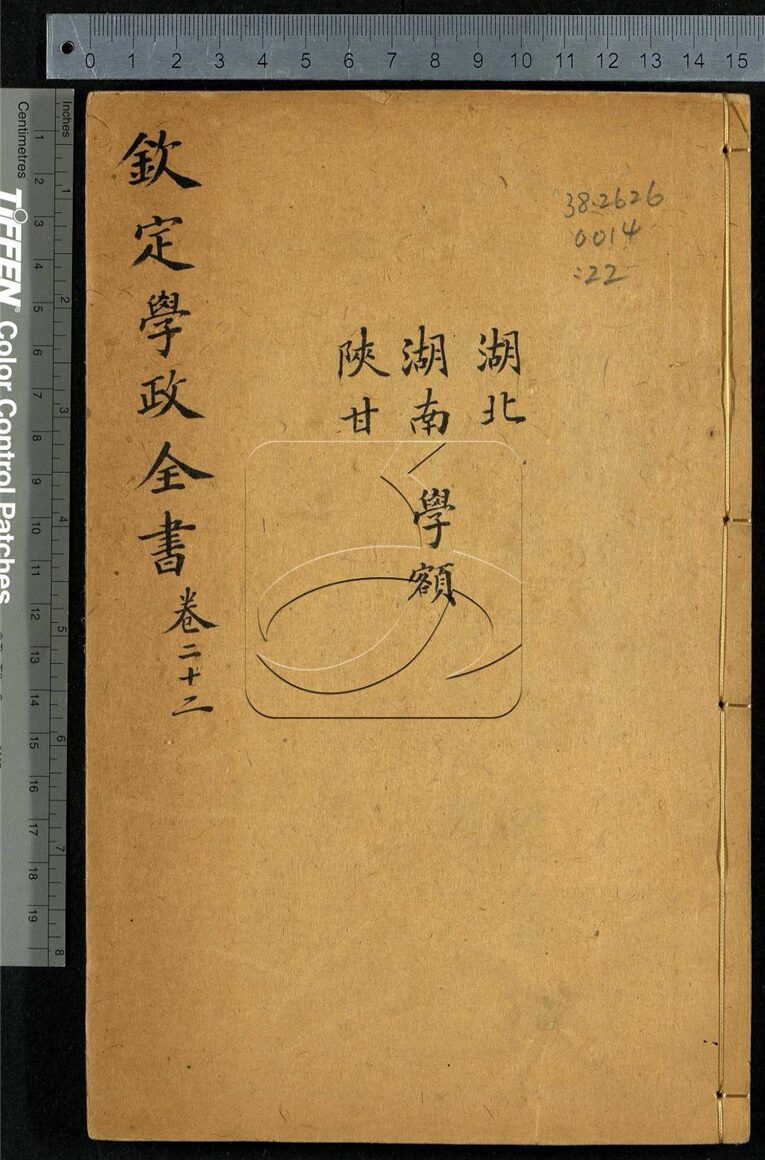 0 1 2 3 4 5 6 7 8 9 10 11 12 13 14 15
Inches
1 2 3 4 5 6 7 8
Centimetres
1 2 3 4 5 6 7 8 9 10 11 12 13 14 15 16 17 18 19
TIFFEN® Color Control Patches
38.2626
0014
:22
湖北
湖南
陝甘
學額
欽定學政全書
卷二十二